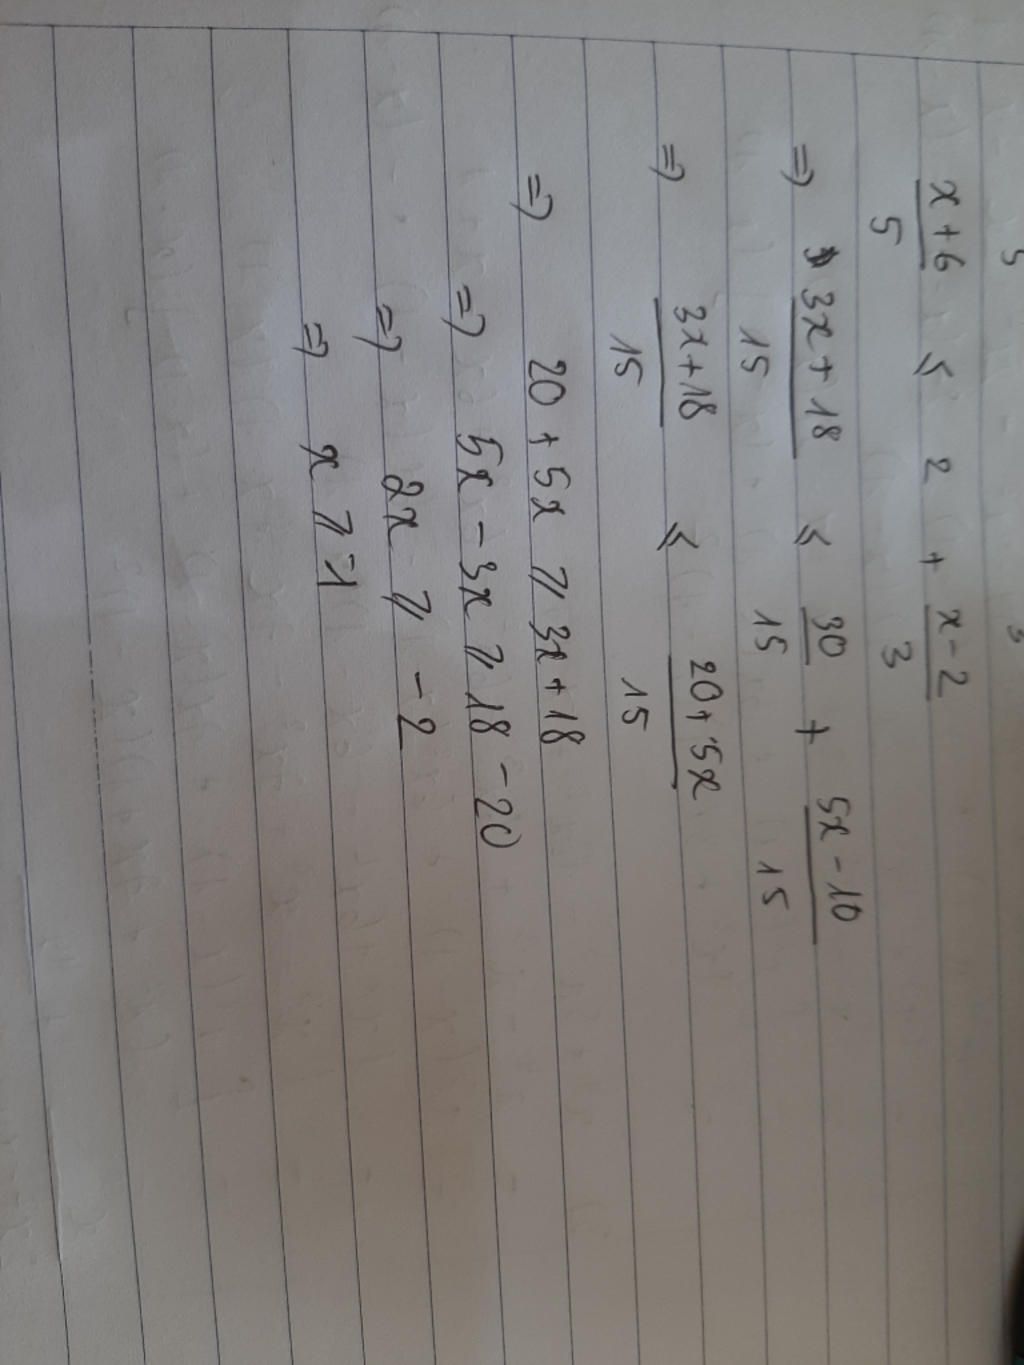 x+6/5 ⩽ 2 + x-2/3
=> 3x+18/15 ⩽ 30/15 + 5x-10/15
=> 3x+18/15 ⩽ 20+5x/15
=> 20+5x ⩾ 3x+18
=> 5x-3x ⩾ 18-20
=> 2x ⩾ -2
=> x ⩾ -1